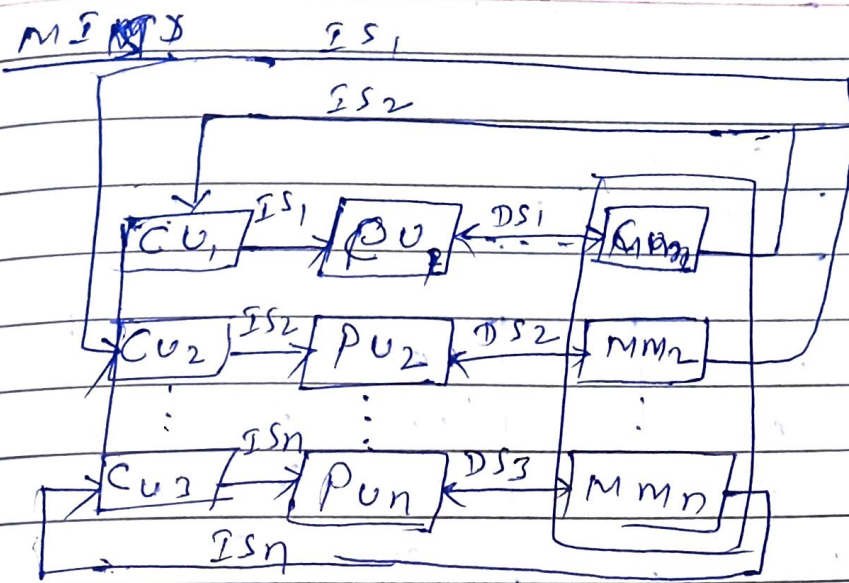 MIMD IS1
IS2
CU1 IS1 DS1
CU2 IS2 PU2 DS2 MM2
⋮ ⋮ ⋮
CU3 ISn PUn DS3 MMn
ISn